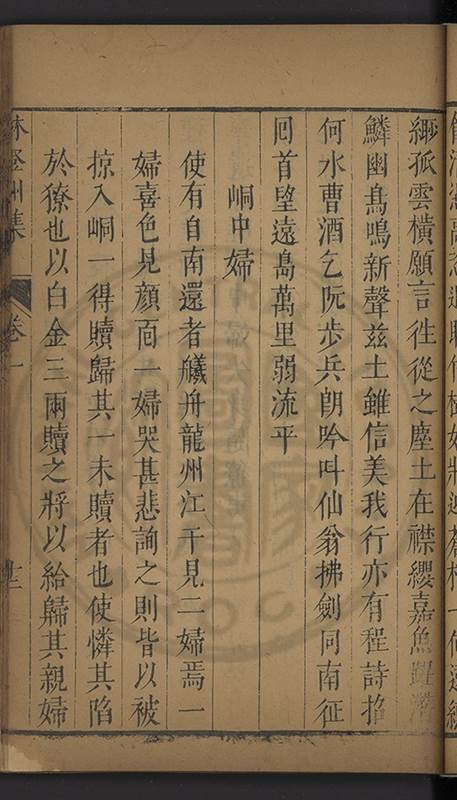 緬孤雲橫願言徃從之塵土在襟纓嘉魚躍
鱗幽鳥鳴新聲兹土雖信美我行亦有程詩招
何水曹酒乞阮步兵朗吟呌仙翁拂劍同南征
囘首望遠島萬里弱流平
峒中婦
使有自南還者艤舟龍州江干見二婦焉一
婦喜色見顔靣一婦哭甚悲詢之則皆以被
掠入峒一得贖歸其一未贖者也使憐其陷
於獠也以白金三兩贖之將以給歸其親婦
林登州集
卷一
十三